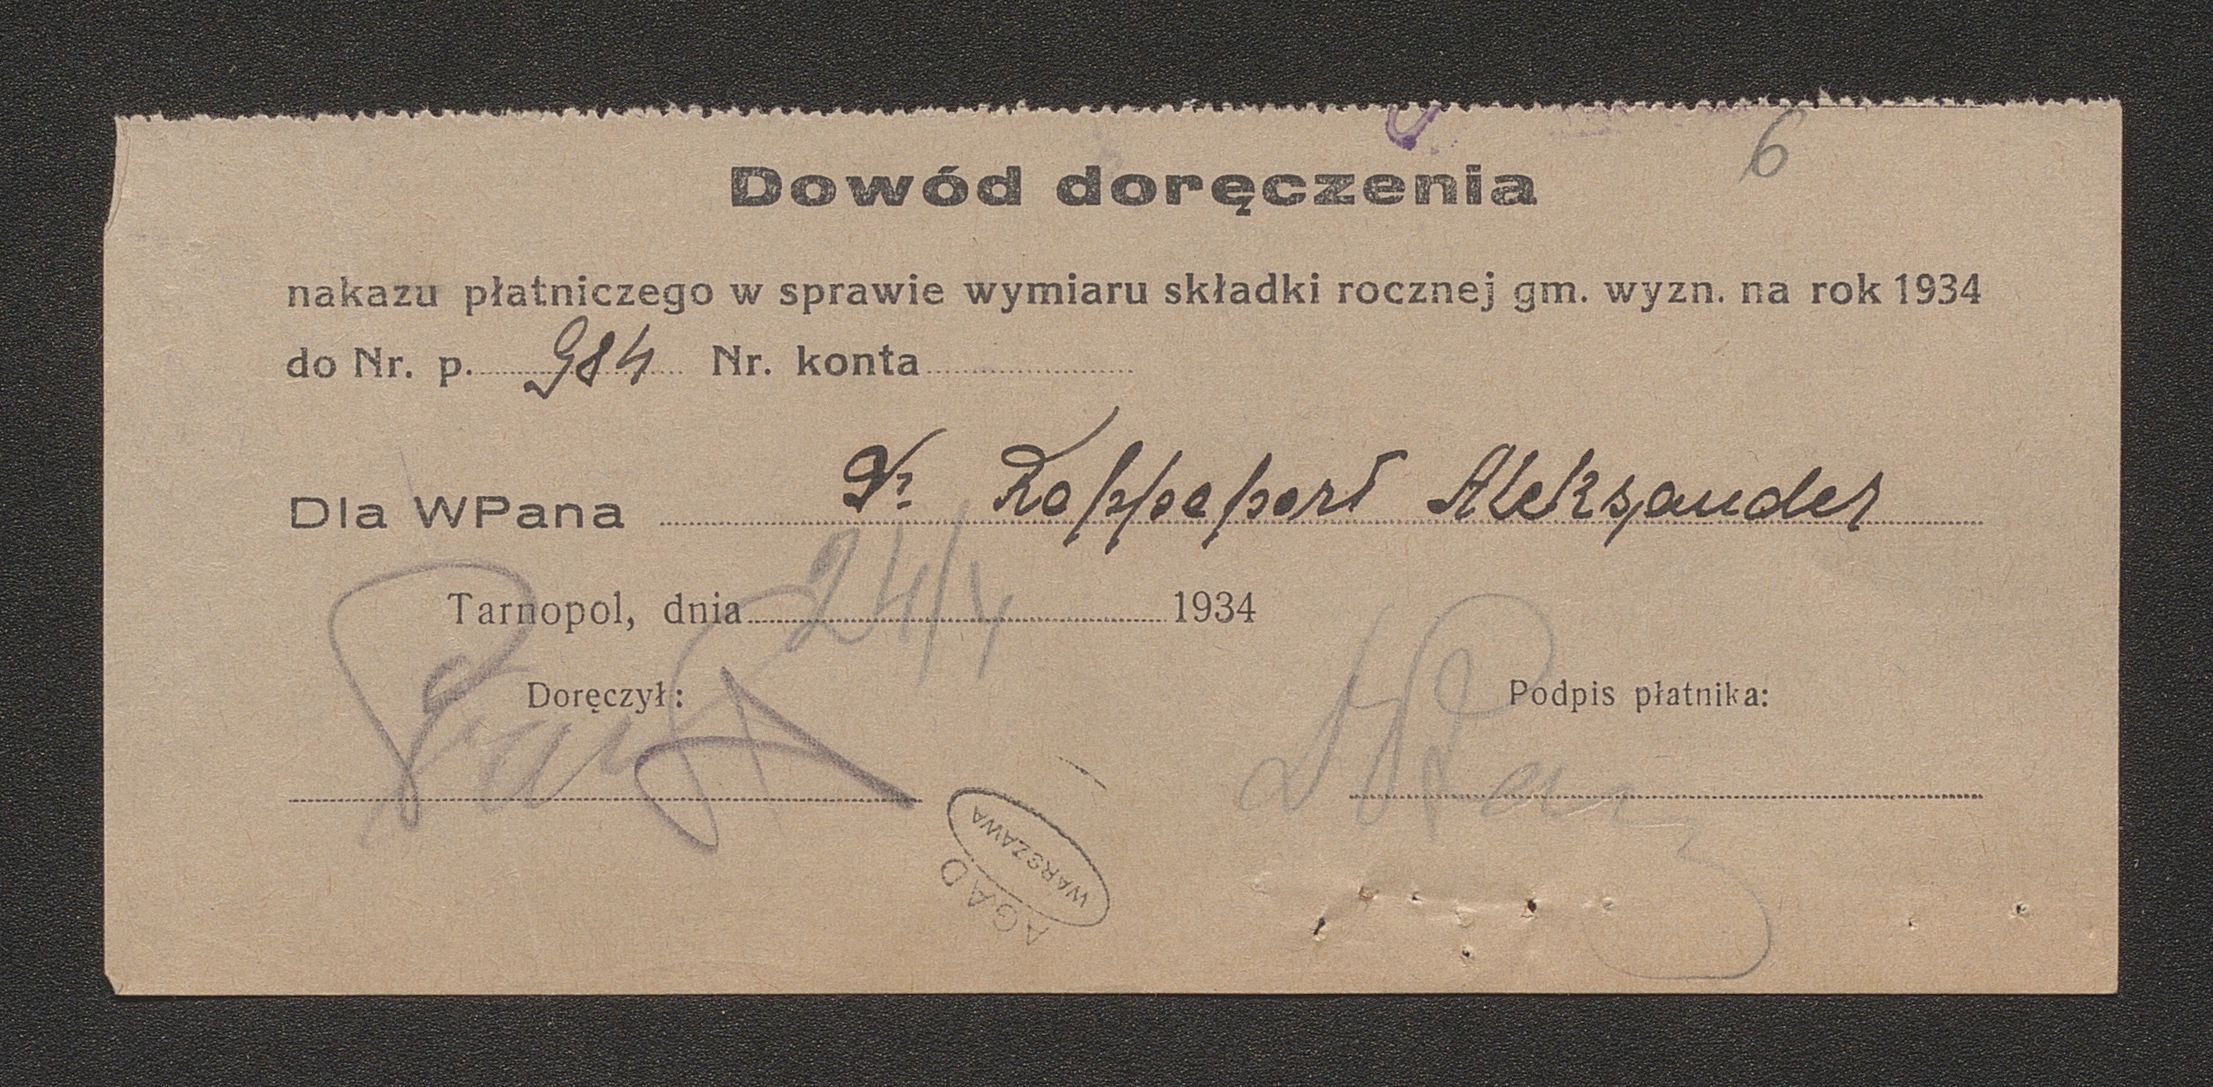 6
Dowód doręczenia
nakazu płatniczego w sprawie wymiaru składki rocznej gm. wyzn. na rok 1934
do Nr. p. 984 Nr. konta
Dla WPana Dr Rappaport Aleksander
Tarnopol, dnia 24/V 1934
Doręczył: Podpis płatnika:
AGAD
WARSZAWA